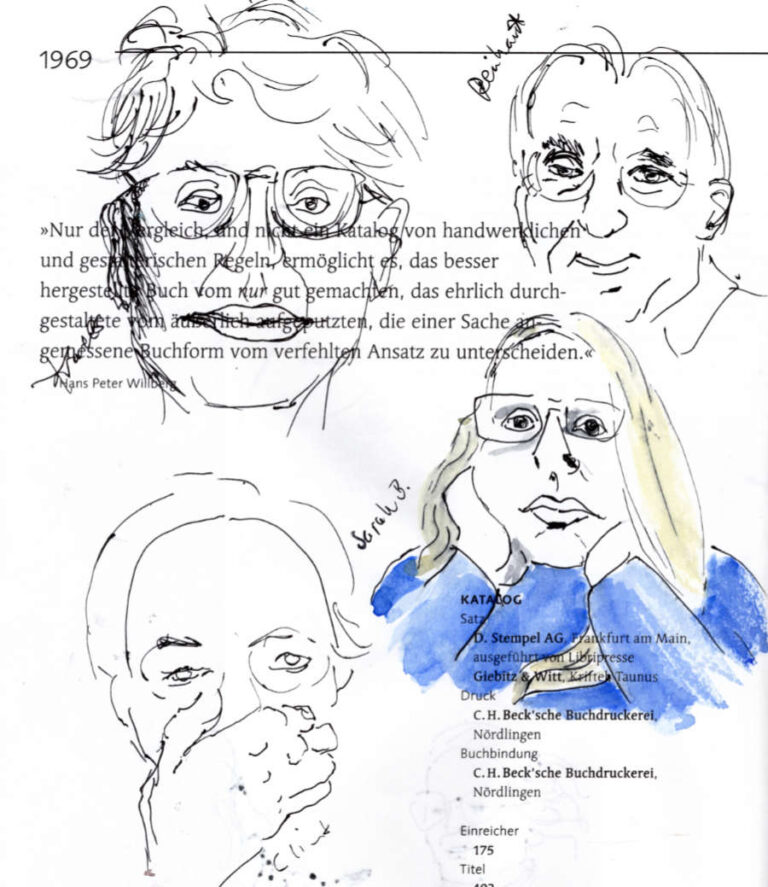 1969
Reinhardt
»Nur der Vergleich, und nicht ein Katalog von handwerklichen
und gestalterischen Regeln, ermöglicht es, das besser
hergestellte Buch vom nur gut gemachten, das ehrlich durch-
gestaltete vom äußerlich aufgeputzten, die einer Sache an-
gemessene Buchform vom verfehlten Ansatz zu unterscheiden.«
Hans Peter Willberg
Sarah B.
KATALOG
Satz
D. Stempel AG, Frankfurt am Main,
ausgeführt von Libripresse
Giebitz & Witt, Kriftel Taunus
Druck
C. H. Beck'sche Buchdruckerei,
Nördlingen
Buchbindung
C. H. Beck'sche Buchdruckerei,
Nördlingen
Clint
Einreicher
175
Titel